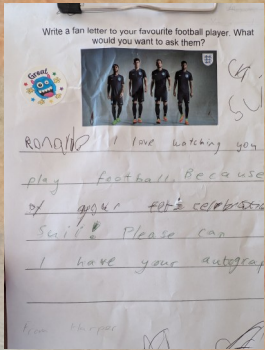 Write a fan letter to your favourite football player. What
would you want to ask them?
Great
Ronaldo I love watching you
play football. Because
of your
Suii! Please can
I have your autograp
from Harper